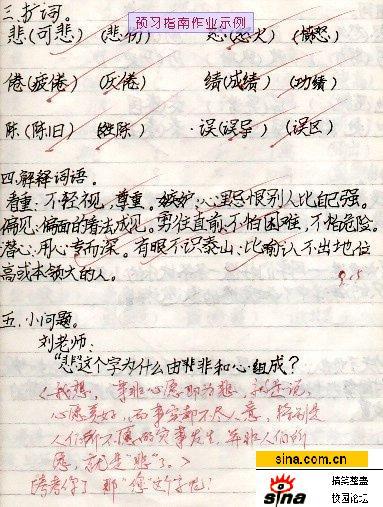 预习指南作业示例
三.扩词。
悲(可悲) (悲伤) 怒(怒火) (愤怒)
倦(疲倦) (厌倦) 绩(成绩) (功绩)
陈(陈旧) (姓陈) 误(误导) (误区)
四.解释词语。
看重:不轻视,尊重。嫉妒:心里忌恨别人比自己强。
偏见:偏面的看法成见。勇往直前:不怕困难,不怕危险。
潜心:用心专而深。有眼不识泰山:比喻认不出地位
高或本领大的人。
9.5
五.小问题。
刘老师:
"悲"这个字为什么由非和心组成?
<我想,并非心愿即为悲,就是说,
心愿美好,而事实却不尽人意,特别是
人们所不愿的灾事发生,并非人们所
愿,就是"悲"了。>
考考你了 那"您"这个字呢!
sina.com.cn
sina
搞笑整蛊
校园论坛